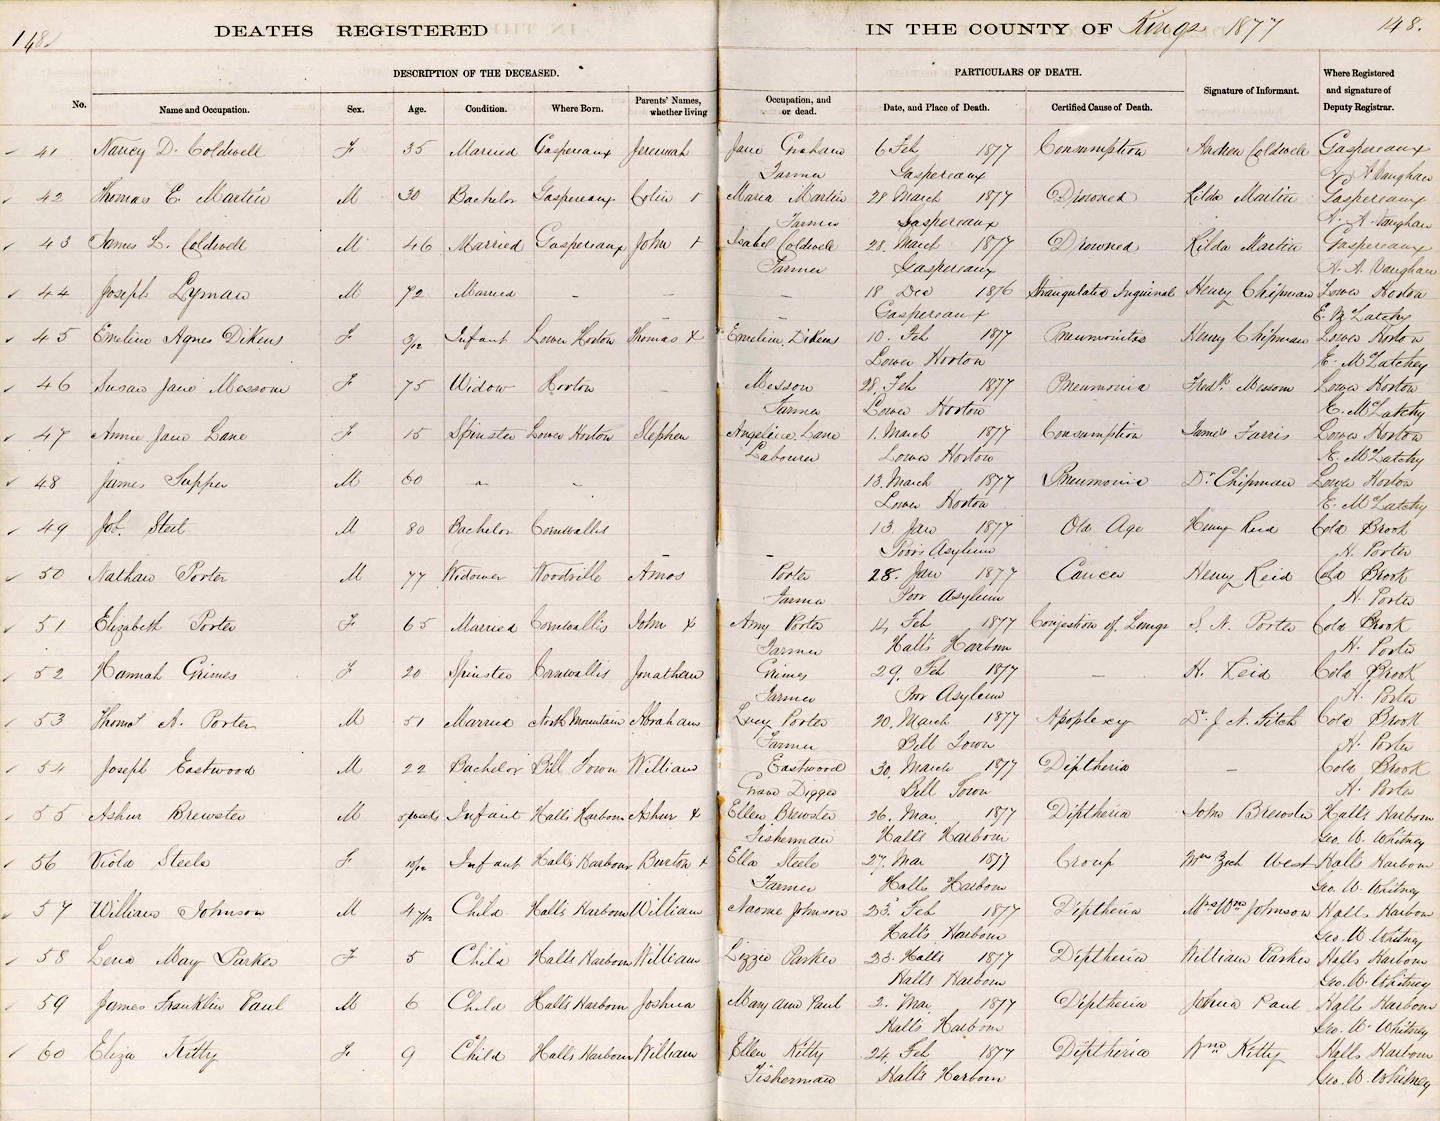 148 DEATHS REGISTERED IN THE COUNTY OF Kings 1877 148.
DESCRIPTION OF THE DECEASED. PARTICULARS OF DEATH.
No. Name and Occupation. Sex. Age. Condition. Where Born. Parents' Names, whether living Occupation, and or dead. Date, and Place of Death. Certified Cause of Death. Signature of Informant. Where Registered and signature of Deputy Registrar.
41 Nancy D. Coldwell F 35 Married Gaspereaux Jeremiah Jane Graham 6 Feb 1877 Consumption Andrew Coldwell Gaspereaux
Farmer Gaspereaux A. A. Vaughan
42 Thomas E. Martin M 30 Bachelor Gaspereaux Colin + Maria Martin 28 March 1877 Drowned Rilda Martin Gaspereaux
Farmer Gaspereaux A. A. Vaughan
43 James L. Coldwell M 46 Married Gaspereaux John + Isabel Coldwell 28. March 1877 Drowned Rilda Martin Gaspereaux
Farmer Gaspereaux A. A. Vaughan
44 Joseph Lyman M 72 Married – – – 18 Dec 1876 Strangulated Inguinal Henry Chipman Lower Horton
– Gaspereaux E. McLatchy
45 Emeline Agnes Dikens F 9/12 Infant Lower Horton Thomas & Emeline Dikens 10. Feb 1877 Pneumonitas Henry Chipman Lower Horton
Lower Horton E. McLatchy
46 Susan Jane Messom F 75 Widow Horton – Messon 28. Feb 1877 Pneumonia Fredk Messom Lower Horton
Farmer Lower Horton E. McLatchy
47 Annie Jane Lane F 15 Spinster Lower Horton Stephen Angeline Lane 1. March 1877 Consumption James Farris Lower Horton
Labourer Lower Horton E. McLatchy
48 James Supper M 60 – – 13. March 1877 Pneumonia Dr Chipman Lower Horton
Lower Horton E. McLatchy
49 Job. Steet M 80 Bachelor Cornwallis 13. Jan 1877 Old Age Henry Reid Cold Brook
– – Poors Asylum H. Porter
50 Nathan Porter M 77 Widower Woodville Amos Porter 28. Jan 1877 Cancer Henry Reid Cold Brook
Farmer Poor Asylum H. Porter
51 Elizabeth Porter F 65 Married Cornwallis John & Amy Porter 14 Feb 1877 Conjestion of Lungs S. N. Porter Cold Brook
Farmer Hall's Harbour H. Porter
52 Hannah Grimes F 20 Spinster Cornwallis Jonathan Grimes 29. Feb 1877 – H. Reid Cold Brook
Farmer Poor Asylum H. Porter
53 Thomas A. Porter M 51 Married North Mountain Abraham Lucy Porter 20. March 1877 Apoplexy Dr J. N. Fitch Cold Brook
Farmer Bill Town H. Porter
54 Joseph Eastwood M 22 Bachelor Bill Town William Eastwood 30. March 1877 Diptheria – Cold Brook
Grave Digger Bill Town H. Porter
55 Ashur Brewster M weeks Infant Halls Harbour Ashur & Ellen Brewster 26. Mar. 1877 Diptheria John Brewster Halls Harbour
Fisherman Hall's Harbour Geo. W. Whitney
56 Viola Steele F 10/12 Infant Hall's Harbour Burton + Ella Steele 27. Mar 1877 Croup Mrs West Halls Harbour
Farmer Halls Harbour Geo. W. Whitney
57 William Johnson M 4 7/12 Child Hall's Harbour William Naome Johnson 23 Feb 1877 Diptheria Mrs Wm Johnson Halls Harbour
Hall's Harbour Geo. W Whitney
58 Lena May Parker F 5 Child Halls Harbour William Lizzie Parker 23. Halls 1877 Diptheria William Parker Halls Harbour
Halls Harbour Geo. W. Whitney
59 James Franklin Paul M 6 Child Hall's Harbour Joshua Mary Ann Paul 2. Mar. 1877 Diptheria Joshua Paul Halls Harbour
Hall's Harbour Geo. W. Whitney
60 Eliza Kitty F 9 Child Hall's Harbour William Ellen Kitty 24. Feb 1877 Diptheria Wm Kitty Halls Harbour
Fisherman Hall's Harbour Geo. W. Whitney